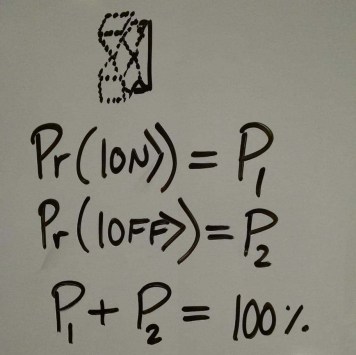 Pr(|ON⟩) = P₁
Pr(|OFF⟩) = P₂
P₁ + P₂ = 100%